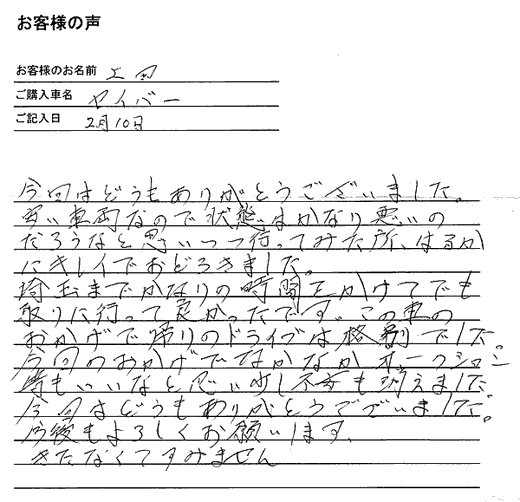 お客様の声
お客様のお名前 上田
ご購入車名 セイバー
ご記入日 2月10日
今回はどうもありがとうございました。
安い車両なので状態はかなり悪いの
だろうなと思いつつ行ってみた所、はるか
にキレイでおどろきました。
埼玉までかなりの時間をかけてでも
取りに行って良かったです。この車の
おかげで帰りのドライブは格別でした。
今回のおかげでなかなかオークション
等もいいなと思い少し不安も消えました
今回はどうもありがとうございました。
今後もよろしくお願いします、
きたなくてすみません